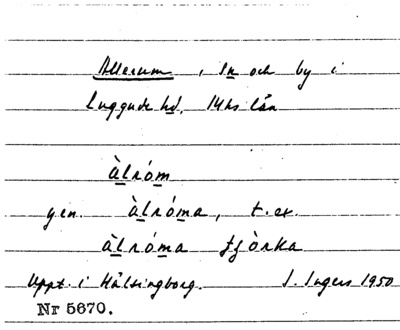 Allerum, sn och by i
Luggude hd. Mhs län
àlróm
gen. àlróma, t. ex.
àlróma ţʒòrka
Uppt. i Hälsingborg. I. Ingers 1950
Nr 5670.